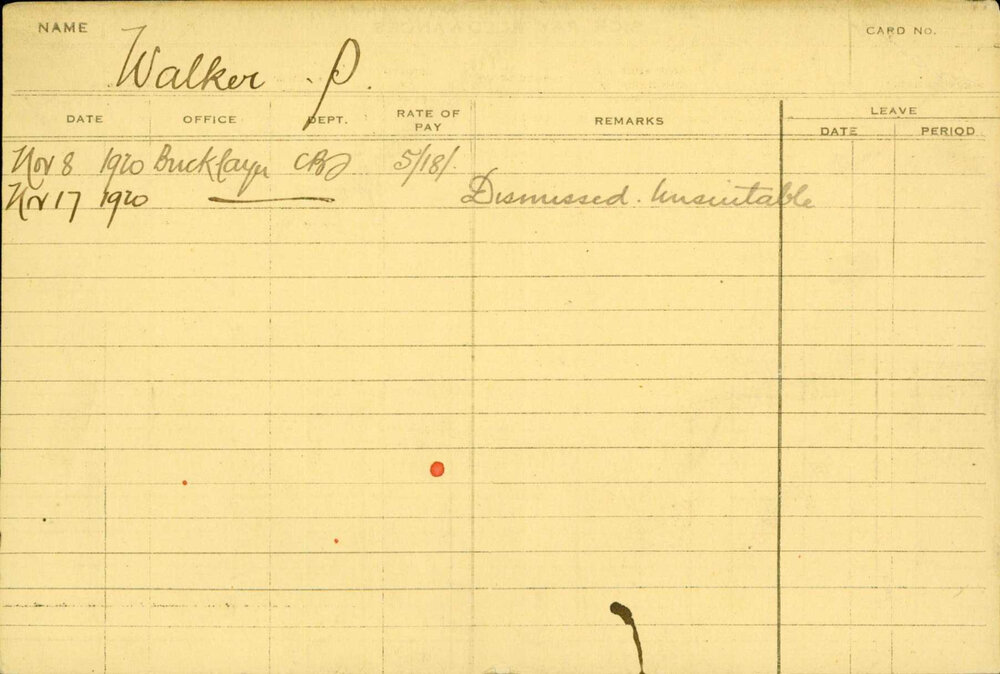 NAME Walker P. CARD No.
DATE OFFICE DEPT. RATE OF PAY REMARKS LEAVE
DATE PERIOD
Nov 8 1920 Bricklayer 5/18/.
Nov 17 1920 Dismissed. Unsuitable